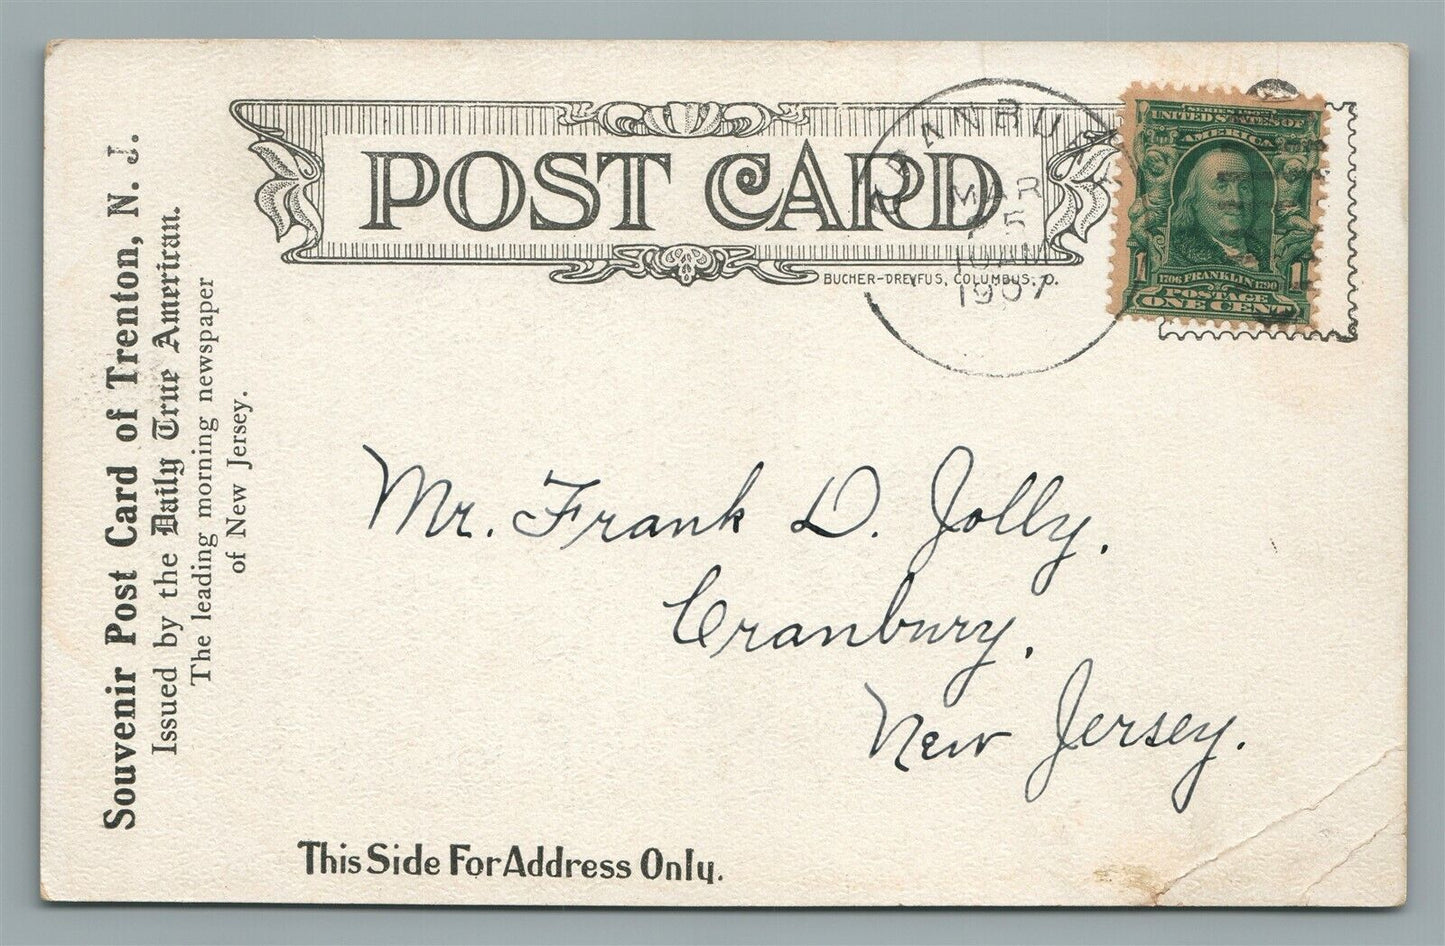 POST CARD
BUCHER-DREYFUS, COLUMBUS, O.
CRANBURY
MAR
5
10 AM
1907
SERIES
UNITED STATES OF
AMERICA
1 1
1706 FRANKLIN 1790
POSTAGE
ONE CENT
Souvenir Post Card of Trenton, N. J.
Issued by the Daily True American.
The leading morning newspaper
of New Jersey.
Mr. Frank D. Jolly.
Cranbury.
New Jersey.
This Side For Address Only.